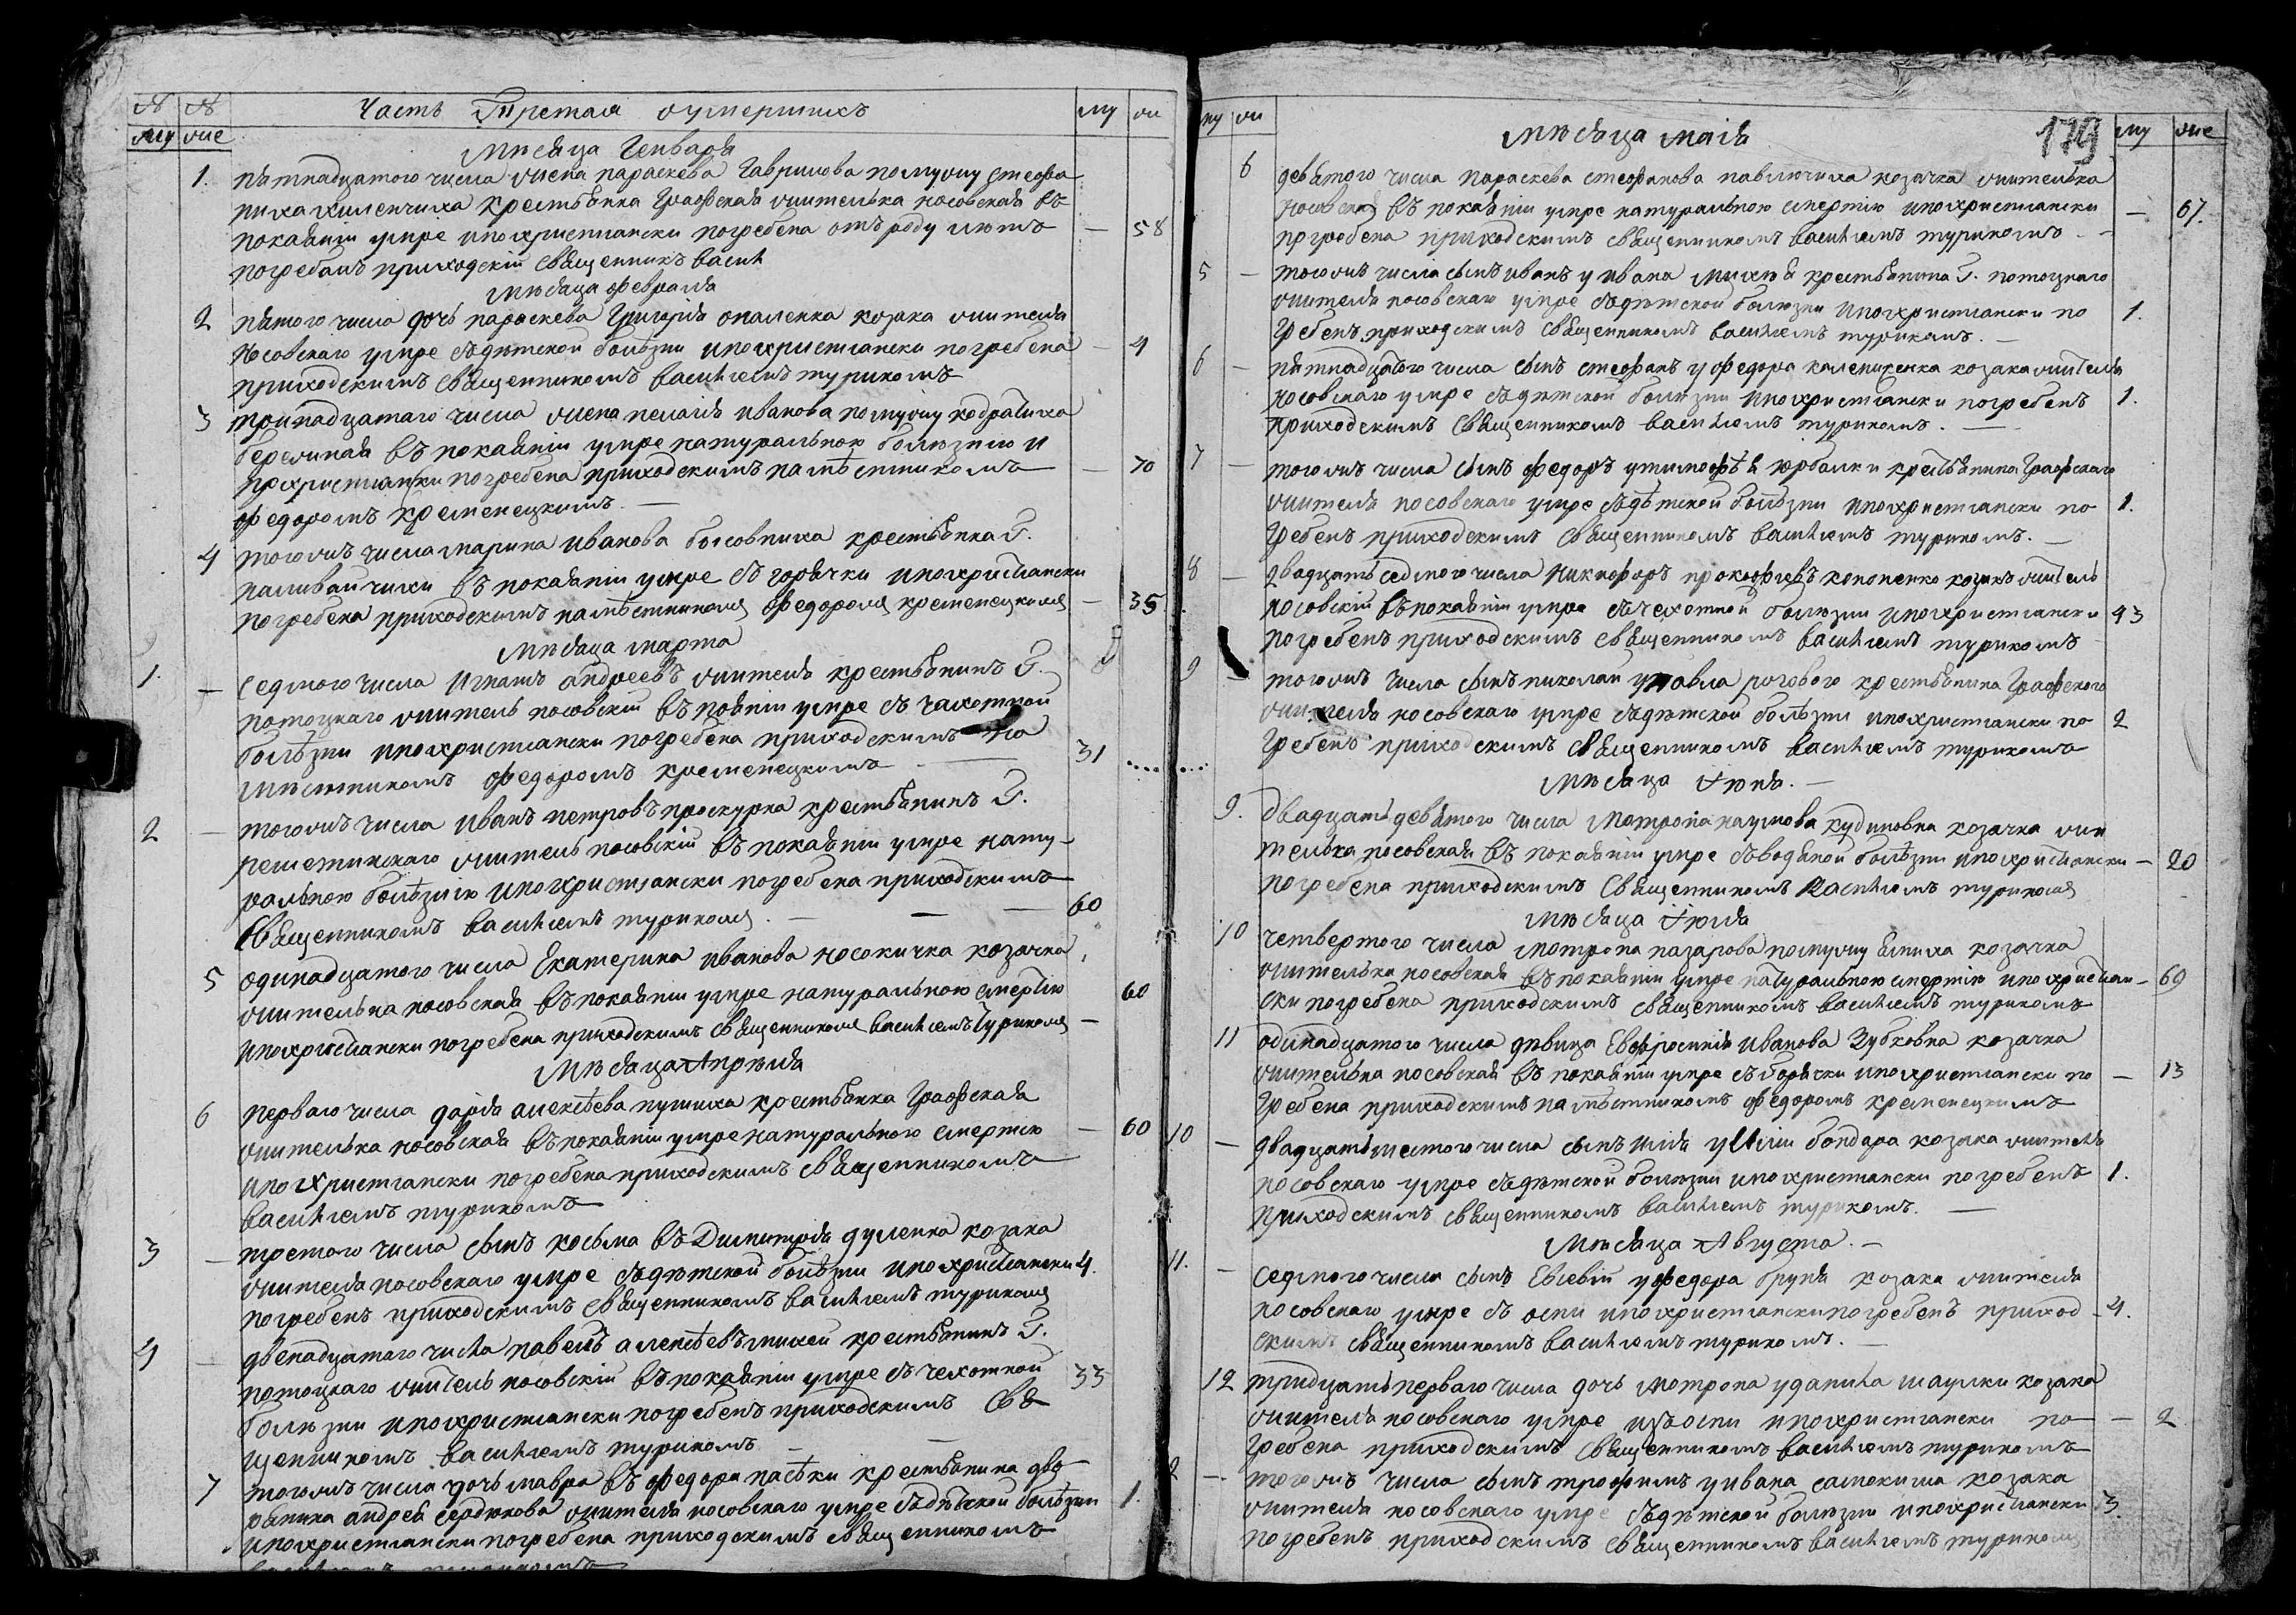 № № Часть Третая оумершихъ му жи
му же
Мѣсяца Генваря
1. пятнадцатого числа жена параскева Гаврилова помужу стефа
ниха крестьянка Графская жителька носовская въ
покаяніи умре ипохристиански погребена отъ роду лѣтъ — 58
погребалъ приходскій священникъ васил
Мѣсяца февраля
2 пятого числа дочь параскева Григорія опаленка козака жителя
носовскаго умре здѣтской болѣзни ипохристиански погребена — 4
приходскимъ священникомъ василиемъ туриком
3 тринадцатаго числа жена пелагія иванова помужу кодратиха
въ покаяніи умре натуральною болѣзнию и
похристиански погребена приходскимъ намѣстникомъ — 70
федоромъ кременецкимъ —
4 тогожъ числа марина иванова крестьянка Г.
въ покаяніи умре зъ горячки ипохристиански
погребена приходскимъ намѣстникомъ федоромъ кременецкимъ — 35
Мѣсяца марта
1. — Седмого числа Игнатъ андреевъ житель крестьянинъ Г.
потоцкаго житель носовскій въ пояніи умре зъ чахотной
болѣзни ипохристиански погребена приходскимъ на
мѣстникомъ федоромъ кременецкимъ — 31
2 — тогожъ числа иванъ петровъ проскурка крестьянинъ Г.
житель носовскій въ покаяніи умре нату-
ральною болѣзнію ипохристиански погребена приходскимъ
священникомъ василиемъ туриком — — — 60
5 одинадцатого числа Екатерина иванова козачка
жителька носовская въ покаяніи умре натуральною смертію 60
ипохристиански погребена приходскимъ священникомъ василиемъ туриком —
Мѣсяца Апрѣля
6 перваго числа дарія алексѣева крестьянка Графская
жителька носовская въ покаяніи умре натуральною смертію — 60
ипохристиански погребена приходскимъ священникомъ
василиемъ туриком
3 — третого числа сынъ косьма въ Димитрія дуленка козака
жителя носовскаго умре здѣтской болѣзни ипохристиански 4.
погребенъ приходскимъ священникомъ василиемъ туриком
4 — двенадцатого числа павелъ алексѣевъ крестьянинъ Г.
потоцкаго житель носовскій въ покаяніи умре зъ чехотной 33
болѣзни ипохристиански погребенъ приходскимъ свя
щенникомъ василиемъ туриком — —
7 тогожъ числа дочь мавра въ федора пасѣки крестьянина дво
рянина андрея сердюкова жителя носовскаго умре здѣтской болѣзни 1.
ипохристиански погребена приходскимъ священникомъ
му жи Мѣсяца маія 179 му же
6 девятого числа параскева стефанова павлючиха козачка жителька
носовская въ покаяніи умре натуральною смертію ипохристиански — 67.
погребена приходскимъ священникомъ василиемъ туриком —
5 — тогожъ числа сынъ иванъ у ивана крестьянина Г. потоцкаго
жителя носовскаго умре здѣтской болѣзни ипохристиански по 1.
гребенъ приходскимъ священникомъ василиемъ туриком. —
6 — пятнадцатого числа сынъ стефанъ у федора козака жителя
носовскаго умре здѣтской болѣзни ипохристиански погребенъ 1.
приходскимъ священникомъ василиемъ туриком. —
7 — тогожъ числа сынъ федоръ у тимофѣя крестьянина Графскаго
жителя носовскаго умре здѣтской болѣзни ипохристиански по 1.
гребенъ приходскимъ священникомъ василиемъ туриком. —
8 — двадцать седмого числа никифоръ прокофіевъ кононенко козакъ житель
носовскій въ покаяніи умре зъ чехотной болѣзни ипохристиански 43
погребенъ приходскимъ священникомъ василиемъ туриком
9 — тогожъ числа сынъ николай у павла рогового крестьянина Графского
жителя носовскаго умре здѣтской болѣзни ипохристиански по 2
гребенъ приходскимъ священникомъ василиемъ туриком
Мѣсяца Іюня. —
9. двадцать девятого числа Мотрона наумова кудиновна козачка жи
телька носовская въ покаяніи умре зъ водяной болѣзни ипохристиански — 20
погребена приходскимъ священникомъ василиемъ туриком
Мѣсяца Іюля
10 четвертого числа мотрона назарова помужу козачка
жителька носовская въ покаяніи умре натуральною смертію ипохристиан — 69
ски погребена приходскимъ священникомъ василиемъ туриком
11 одинадцатого числа дѣвица Евфросинія иванова Зубковна козачка
жителька носовская въ покаяніи умре зъ горячки ипохристиански по — 13
гребена приходскимъ намѣстникомъ федоромъ кременецкимъ
10 — двадцать шестого числа сынъ илія у Иліи бондара козака жителя
носовскаго умре здѣтской болѣзни ипохристиански погребенъ 1.
приходскимъ священникомъ василиемъ туриком. —
Мѣсяца Августа. —
11. — Седмого числа сынъ Евсевій у федора козака жителя
носовскаго умре зъ оспи ипохристиански погребенъ приход — 4.
скимъ священникомъ василиемъ туриком. —
12 тридцать перваго числа дочь мотрона у данила шаулки козака
жителя носовскаго умре изъ оспи ипохристиански по — 2
гребена приходскимъ священникомъ василиемъ туриком
2 — тогожъ числа сынъ трофимъ у ивана самокиша козака
жителя носовскаго умре здѣтской болѣзни ипохристиански 3.
погребенъ приходскимъ священникомъ василиемъ туриком